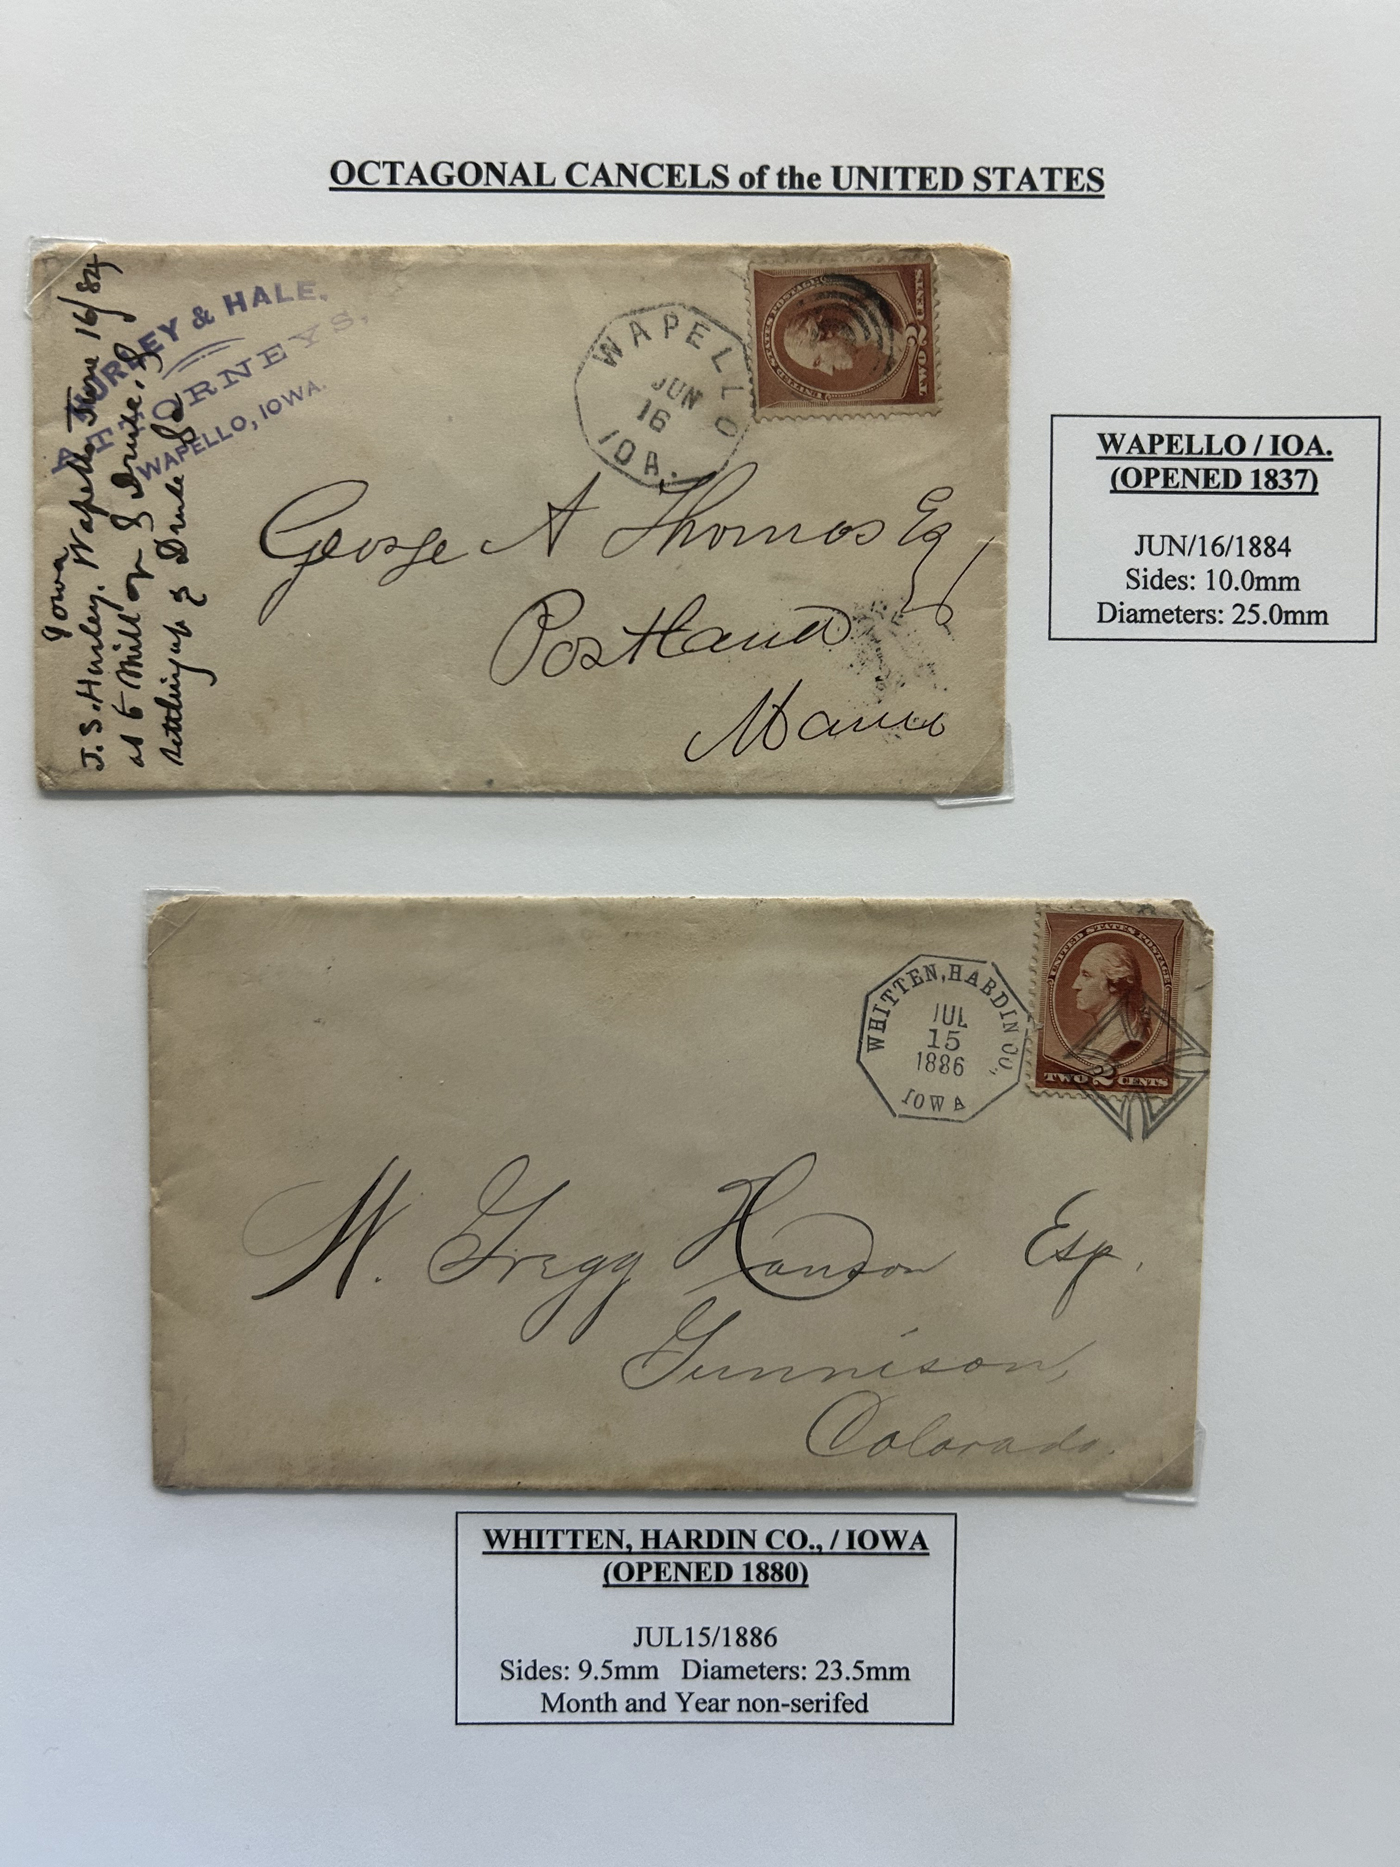 OCTAGONAL CANCELS of the UNITED STATES
HURLEY & HALE,
ATTORNEYS.
WAPELLO, IOWA.
Iowa
J. S. Hurley. Wapello June 16/84
at 5 Mill
settling up
WAPELLO
JUN
16
IOA.
UNITED STATES POSTAGE
TWO 2 CENTS
George A Thomas Esq
Portland
Maine
WAPELLO / IOA.
(OPENED 1837)
JUN/16/1884
Sides: 10.0mm
Diameters: 25.0mm
WHITTEN, HARDIN CO.,
JUL
15
1886
IOWA
UNITED STATES POSTAGE
TWO 2 CENTS
W. Gregg Hanson Esq.
Gunnison,
Colorado.
WHITTEN, HARDIN CO., / IOWA
(OPENED 1880)
JUL15/1886
Sides: 9.5mm Diameters: 23.5mm
Month and Year non-serifed